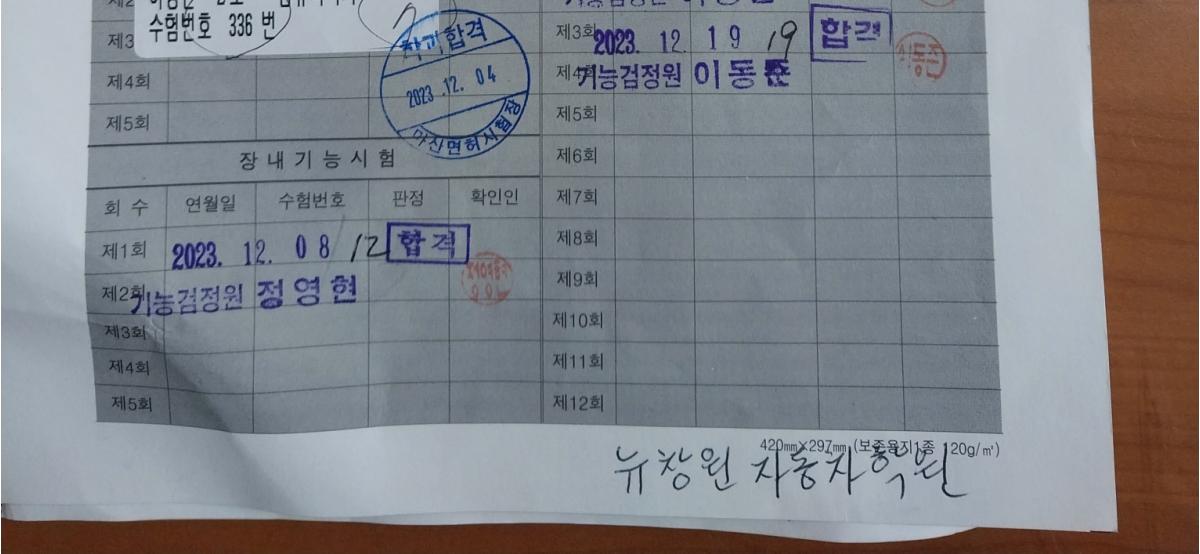 수험번호 336 번
제3
제4회
제5회
학과합격
2023.12.04
마산면허시험장
장내기능시험
회수 연월일 수험번호 판정 확인인
제1회 2023. 12. 08 12 합격
제2회
기능검정원 정영현
제3회
제4회
제5회
제3회 2023. 12. 19 19 합격
제4회
기능검정원 이동준
이동준
제5회
제6회
제7회
제8회
제9회
제10회
제11회
제12회
420㎜×297㎜ (보존용지1종 120g/㎡)
뉴창원 자동차학원